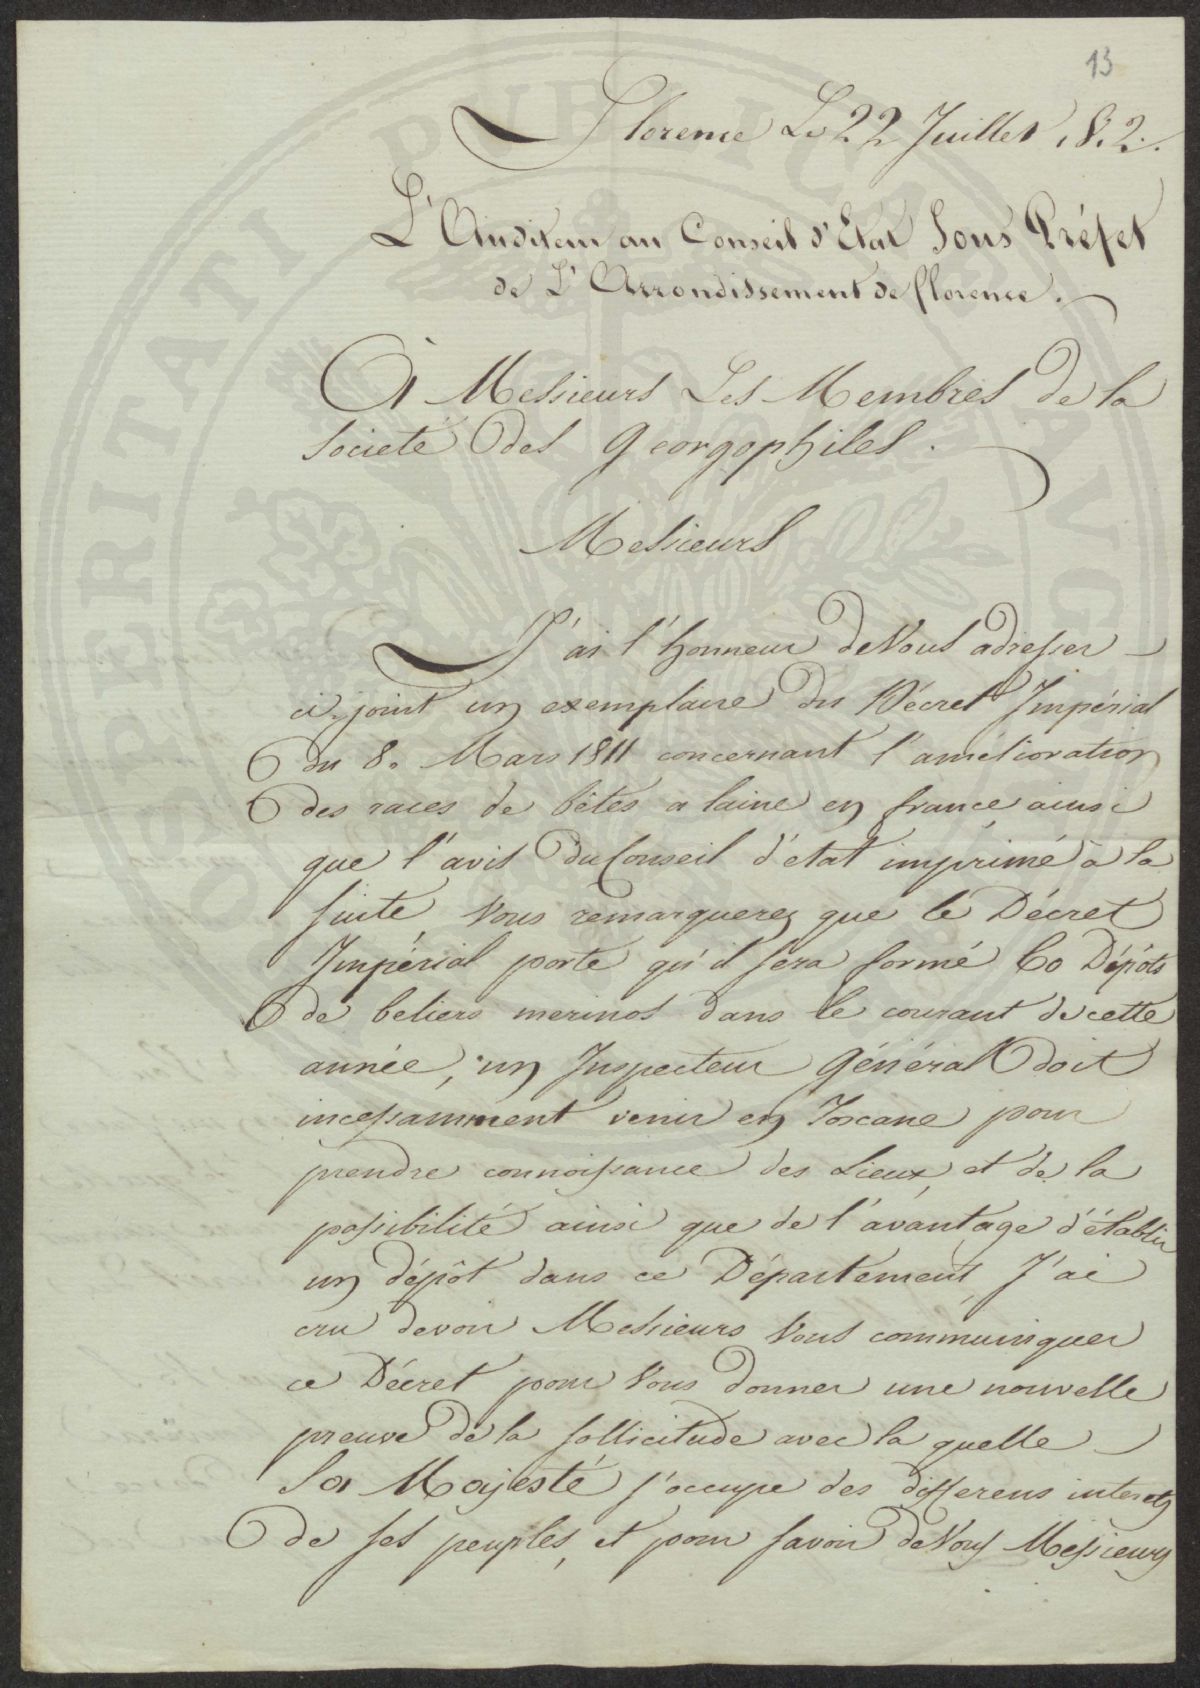 13
Florence Le 22 Juillet 1812.
L'Auditeur au Conseil d'Etat Sous Préfet
de L'Arrondissement de florence.
A Messieurs Les Membres de la
Societé des Georgophiles.
Messieurs
J'ai l'honneur de Vous adresser
ci-joint un exemplaire du Décret Impérial
du 8. Mars 1811 concernant l'amélioration
des races de bêtes a laine en france ainsi
que l'avis du Conseil d'état imprimé à la
suite, Vous remarquerez que le Décret
Impérial porte qu'il sera formé 60 Dépôts
de beliers merinos dans le courant de cette
année, un Inspecteur Général doit
incessamment venir en Toscane pour
prendre connoissance des Lieux, et de la
possibilité ainsi que de l'avantage d'établir
un dépôt dans ce Département, J'ai
cru devoir Messieurs Vous communiquer
ce Décret pour Vous donner une nouvelle
preuve de la sollicitude avec la quelle
Sa Majesté s'occupe des differens interets
de ses peuples, et pour savoir de Vous Messieurs
PERITATI PVBLICAE AVG